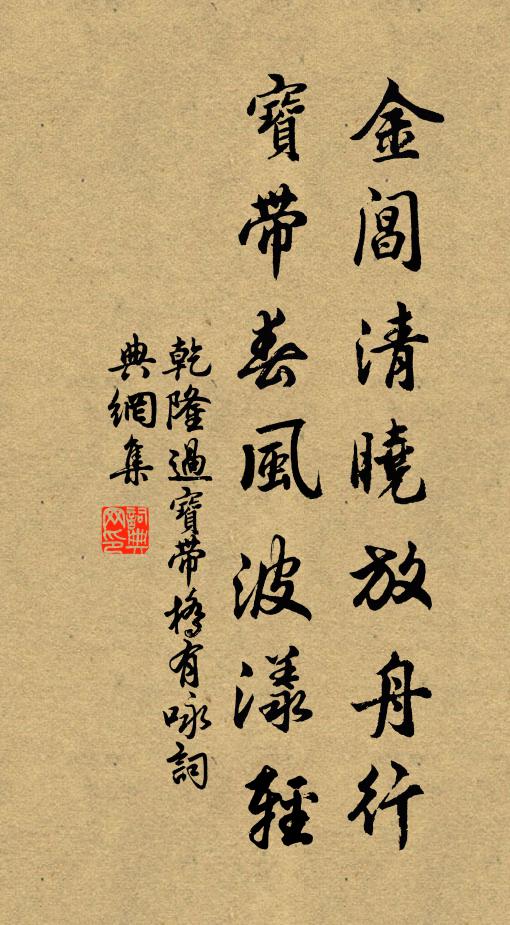 金閶清曉放舟行
寶帶春風波漾輕
乾隆過寶帶橋有咏詞
典網集
詞典網印